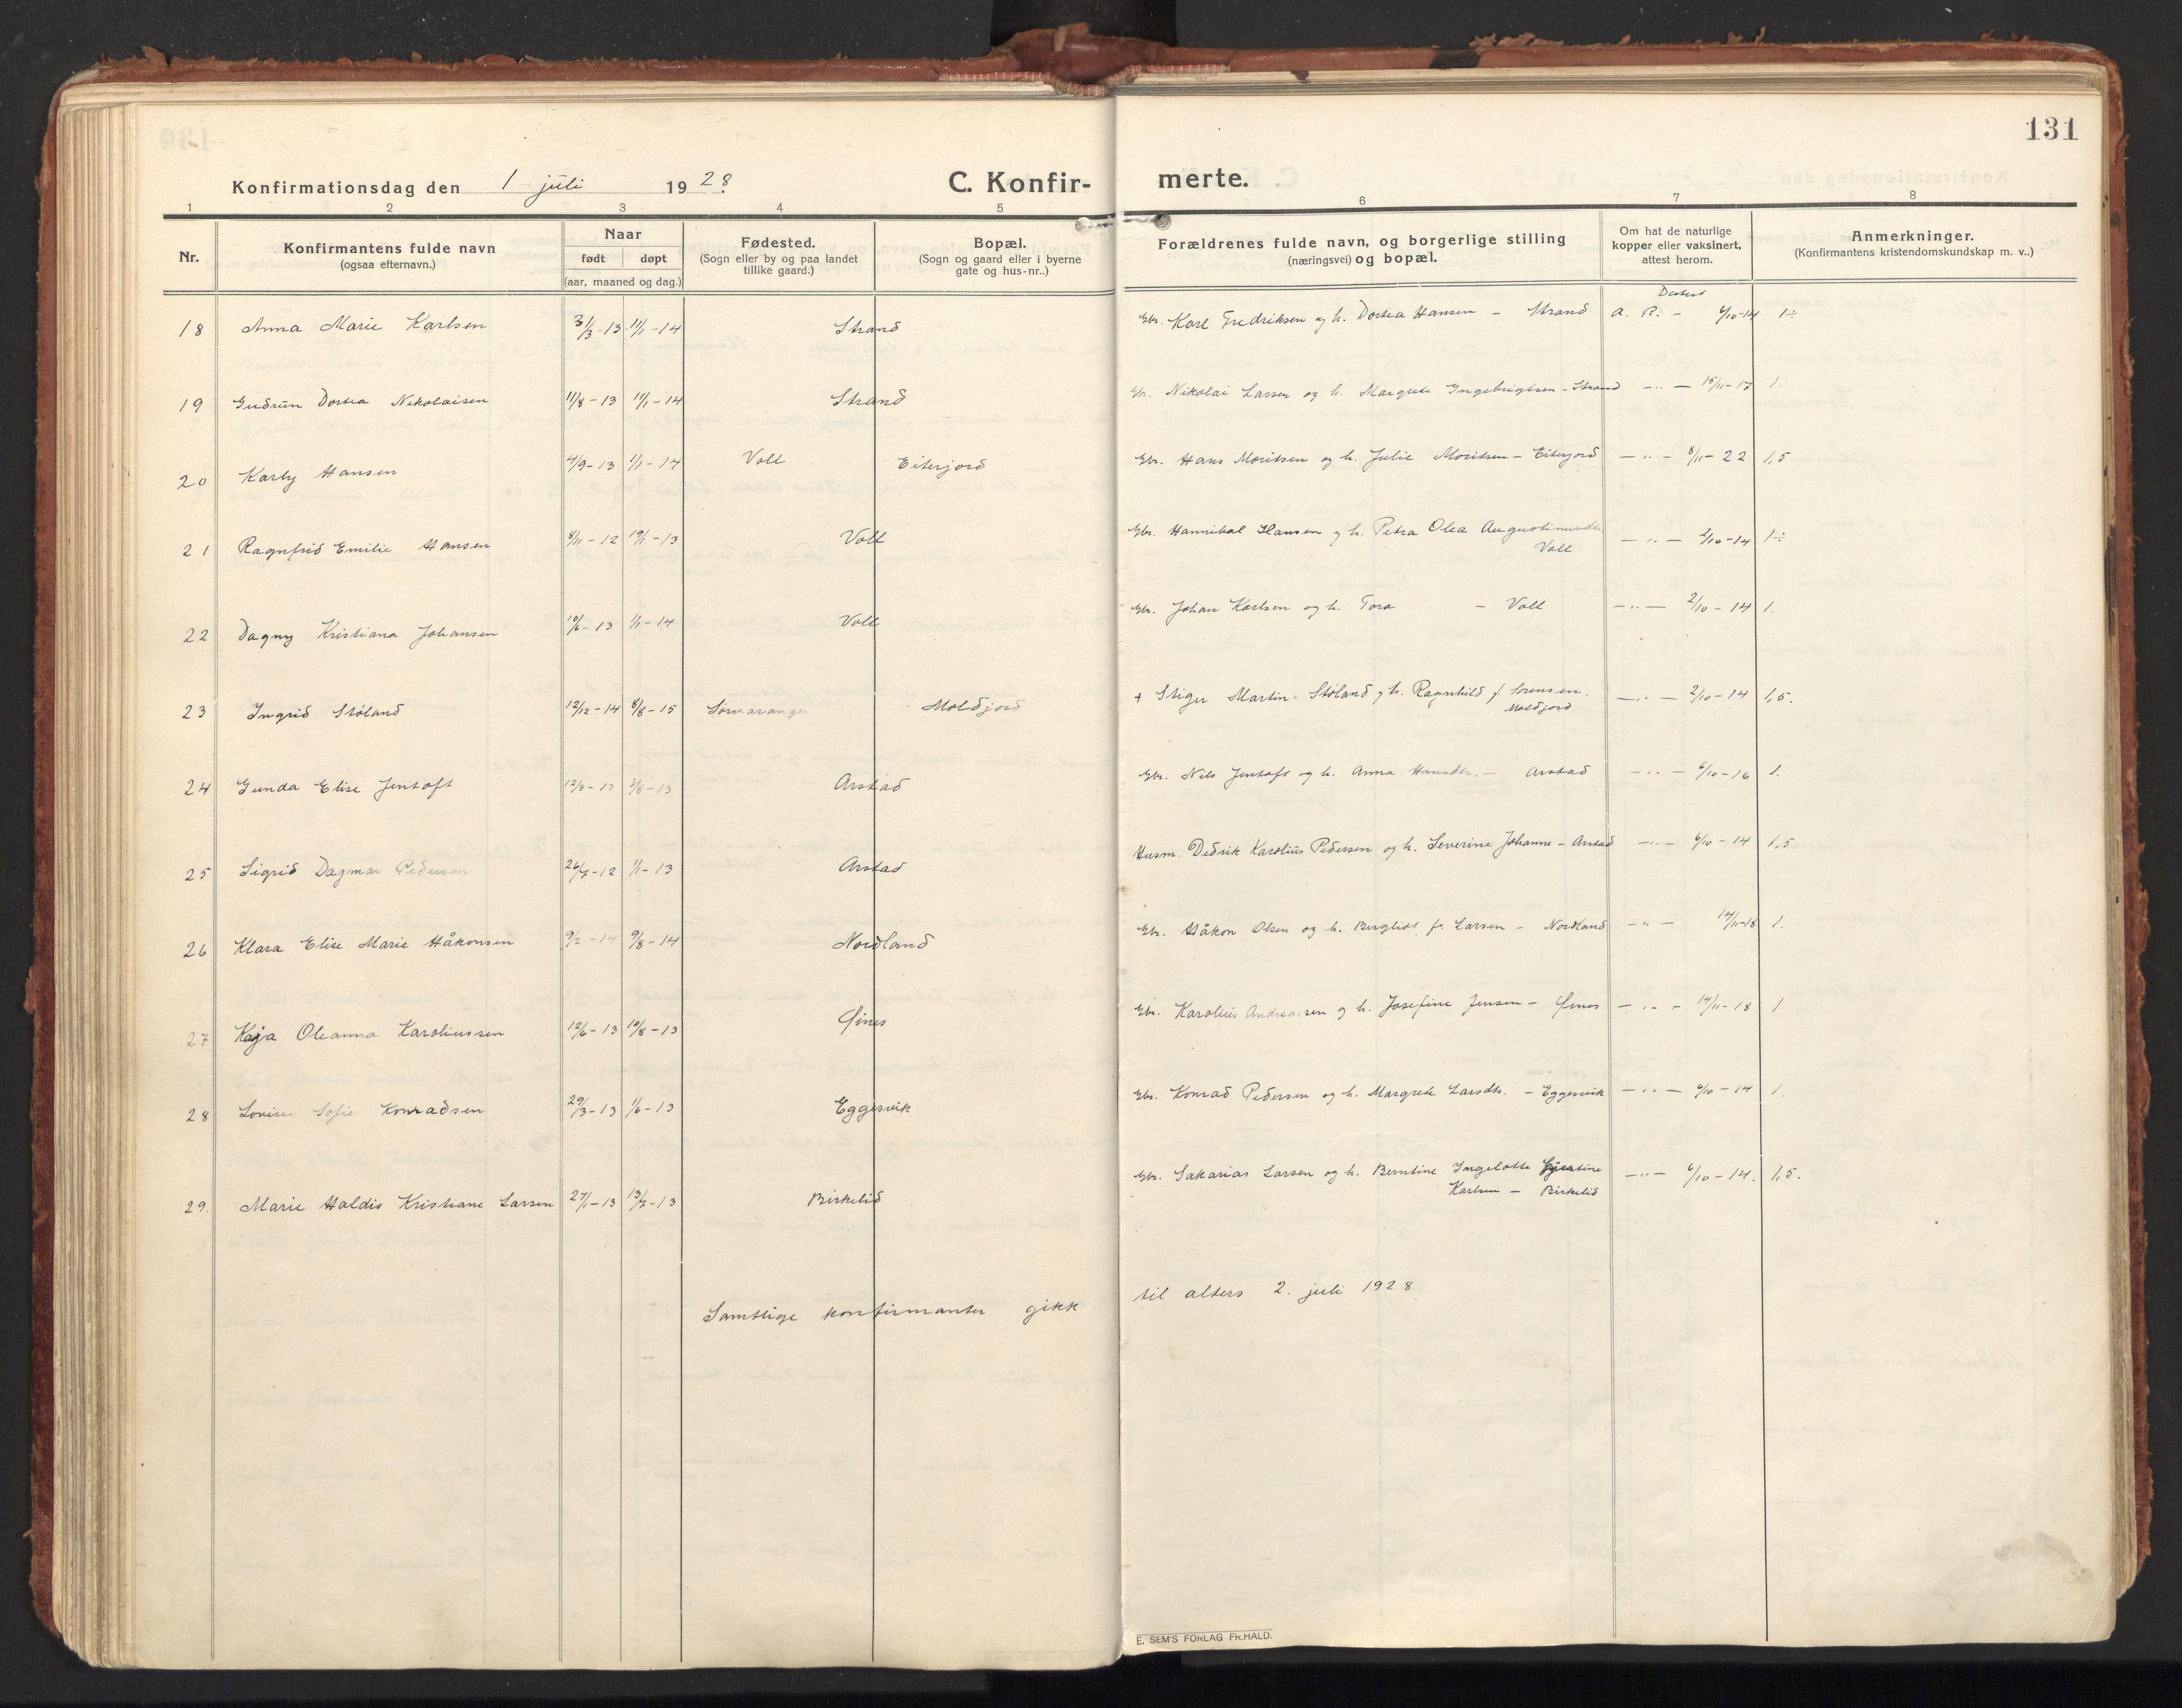 131
Konfirmationsdag den 1 juli 1928.
C. Konfirmerte.
1 2 3 4 5 6 7 8
Nr.
Konfirmantens fulde navn (ogsaa efternavn.)
Naar født døpt (aar, maaned og dag.)
Fødested. (Sogn eller by og paa landet tillike gaard.)
Bopæl. (Sogn og gaard eller i byerne gate og hus-nr..)
Forældrenes fulde navn, og borgerlige stilling (næringsvei) og bopæl.
Om hat de naturlige kopper eller vaksinert, attest herom.
Anmerkninger. (Konfirmantens kristendomskundskap m. v..)
18 Anna Marie Karlsen 31/3-13 11/1-14 Strand Gbr. Karl Fredriksen og h. Dortea Hansen - Strand A. R. - 6/10-14 1÷
19 Gudrun Dortea Nikolaisen 11/8-13 11/1-14 Strand Gbr. Nikolai Larsen og h. Margrete Ingebrigtsen - Strand -"- 15/11-17 1.
20 Karly Hansen 4/9-13 1/1-14 Voll Eiterjord Gbr. Hans Moritsen og h. Julie Moritsen - Eiterjord -"- 8/11-22 1,5
21 Ragnfrid Emilie Hansen 8/11-12 19/1-13 Voll Gbr. Hannibal Hansen og h. Petra Olea Augustinusdtr.
Voll -"- 2/10-14 1÷
22 Dagny Kristiana Johansen 10/6-13 1/1-14 Voll Gbr. Johan Karlsen og h. Tora - Voll -"- 2/10-14 1.
23 Ingrid Støland 12/12-14 8/8-15 Sørvaranger Moldjord + Stiger Martin Støland og h. Ragnhild f. Sørensen.
Moldjord -"- 2/10-14 1,5.
24 Gunda Elise Jentoft 12/3-13 3/8-13 Arstad Gbr. Nils Jentoft og h. Anna Hansdtr. - Arstad -"- 6/10-16 1.
25 Sigrid Dagmar Pedersen 26/7-12 1/1-13 Arstad Husm. Dedrik Karolius Pedersen og h. Severine Johanne - Arstad -"- 6/10-14 1,5.
26 Klara Elise Marie Håkonsen 9/2-14 9/8-14 Nordland Gbr. Håkon Olsen og h. Bergliot f. Larsen - Nordland -"- 14/11-18 1.
27 Kaja Oleanna Karoliussen 12/6-13 10/8-13 Øines Gbr. Karolius Andreassen og h. Josefine Jensen - Øines -"- 14/11-18 1
28 Lovise Sofie Konradsen 29/3-13 1/6-13 Eggesvik Gbr. Konrad Pedersen og h. Margrete Larsdtr. - Eggesvik -"- 6/10-14 1.
29. Marie Haldis Kristiane Larsen 27/1-13 13/7-13 Birkelid Gbr. Sakarias Larsen og h. Berntine Ingelotte
Karlsen - Birkelid -"- 6/10-14. 1,5.
Samtlige konfirmanter gikk til alters 2. juli 1928.
E. SEM'S FORLAG FR.HALD.